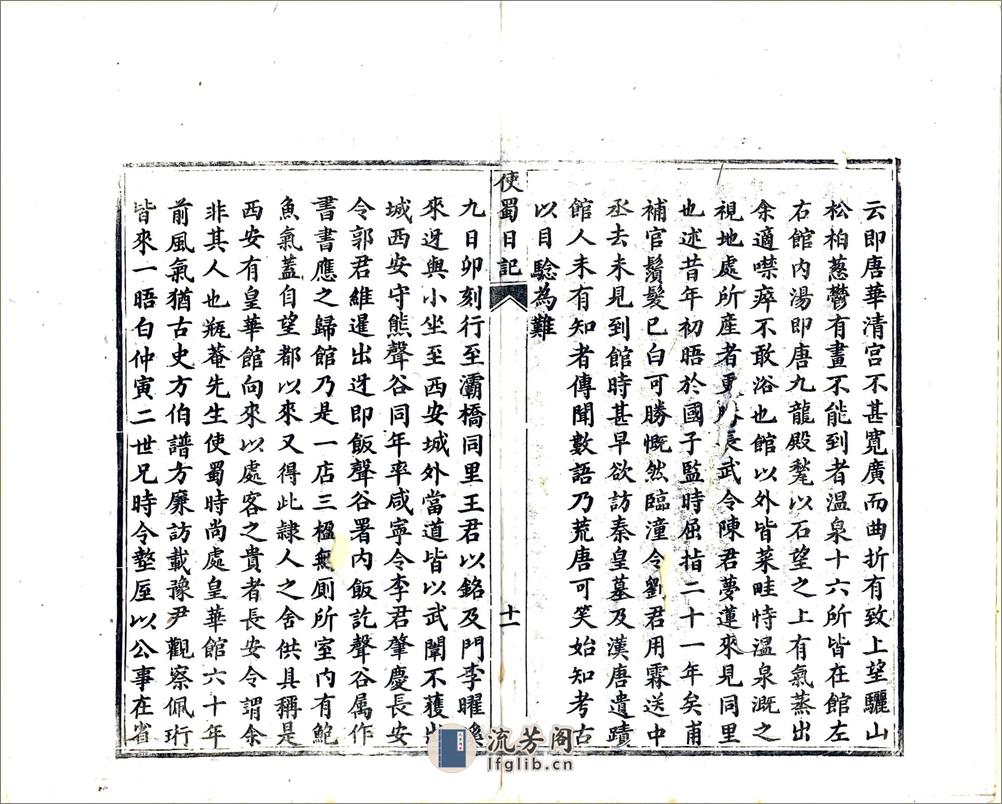 云即唐華清宮不甚寬廣而曲折有致上望驪山
松柏蔥鬱有畫不能到者溫泉十六所皆在館左
右館內湯即唐九龍殿甃以石望之上有氣蒸出
余適噤瘁不敢浴也館以外皆菜畦恃溫泉溉之
視地處所產者更 長武令陳君夢蓮來見同里
也述昔年初晤於國子監時屈指二十一年矣甫
補官鬚髮已白可勝慨然臨潼令劉君用霖送中
丞去未見到館時甚早欲訪秦皇墓及漢唐遺蹟
館人未有知者傳聞數語乃荒唐可笑始知考古
以目驗為難
使蜀日記
十一
九日卯刻行至灞橋同里王君以銘及門李曜
來迓與小坐至西安城外當道皆以武闈不獲出
城西安守熊聲谷同年率咸寧令李君肇慶長安
令郭君維暹出迓即飯聲谷署內飯訖聲谷属作
書書應之歸館乃是一店三楹無厠所室內有鮑
魚氣蓋自望都以來又得此隸人之舍供具稱是
西安有皇華館向來以處客之貴者長安令謂余
非其人也瓶菴先生使蜀時尚處皇華館六十年
前風氣猶古史方伯譜方廉訪載豫尹觀察佩珩
皆來一晤白仲寅二世兄時令盩厔以公事在省
流芳阁
lfglib.cn